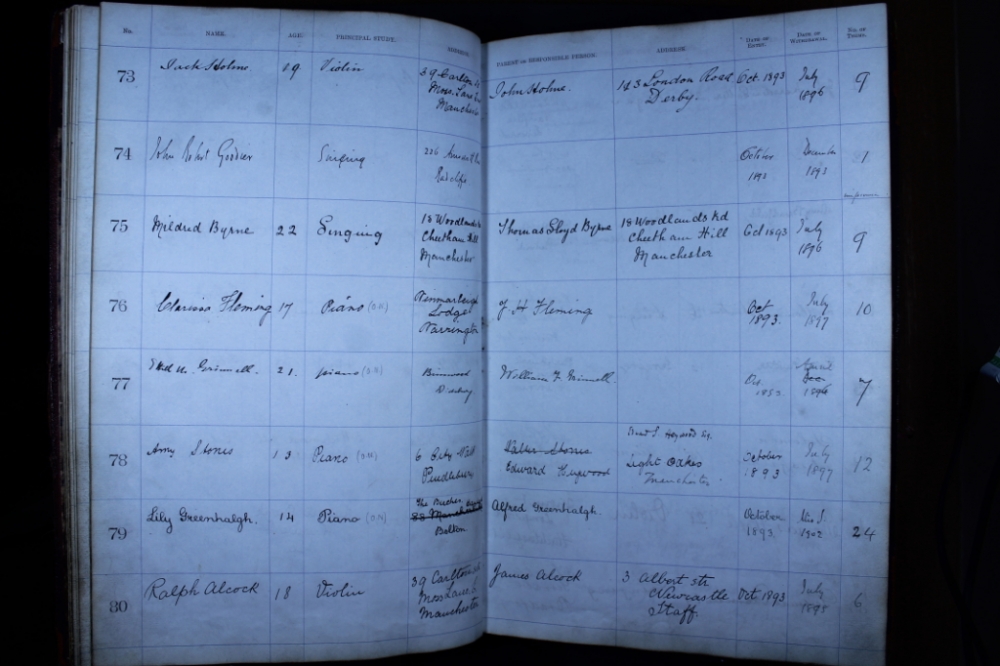 No. NAME. AGE. PRINCIPAL STUDY. PARENT OR RESPONSIBLE PERSON. ADDRESS. DATE OF ENTRY. DATE OF WITHDRAWAL. NO. OF TERMS.
73 Jack Holme 19 Violin 39 Carlton
Moss Lane
Manchester
John Holme. 143 London Road Oct. 1893 July 9
Derby. 1896
74 Singing October December 1
Radcliffe 1893 1893
75 Mildred Byrne 22 Singing 18 Woodlands Rd
Cheetham Hill
Manchester
Thomas Lloyd Byrne 18 Woodlands Rd Oct 1893 July 9
Cheetham Hill 1896
Manchester
76 Clarissa Fleming 17 Piano
Lodge
Warrington
J H Fleming Oct July 10
1893. 1897
77 21. piano
William 7
1893
78 Amy Stones 13 Piano 6
Pendlebury
October July 12
Edward Light Oakes 1893 1897
Manchester
79 Lily Greenhalgh. 14 Piano The
Bolton
Alfred Greenhalgh. October 24
1893. 1902
80 Ralph Alcock 18 Violin 39 Carlton
Moss Lane
Manchester
James Alcock 3 Albert str Oct 1893 July 6
Newcastle 1895
Staff.